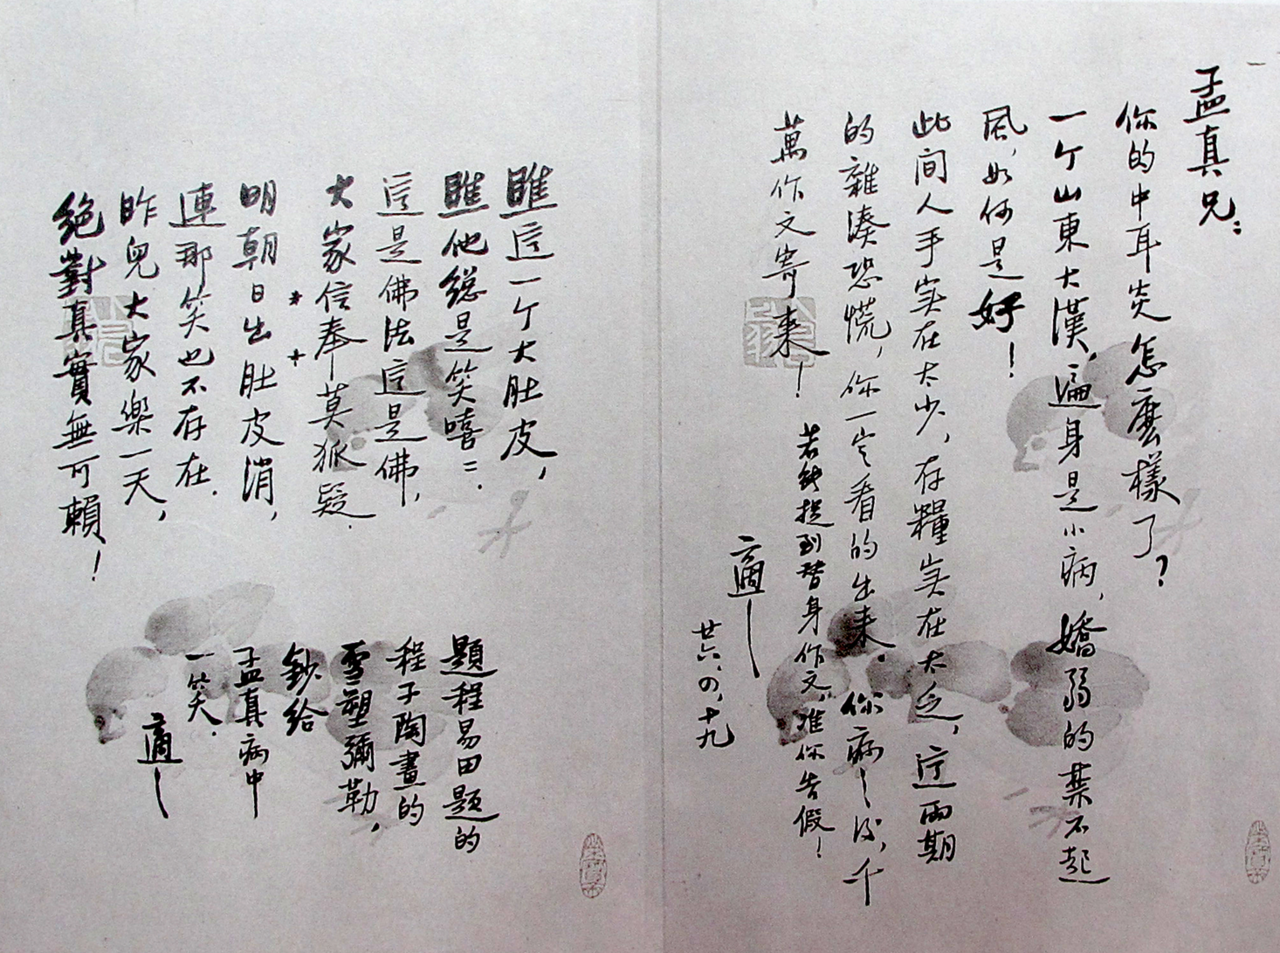 孟真兄：
你的中耳炎怎麽樣了？
一个山東大漢，遍身是小病，嬌弱的禁不起
風，如何是好！
此间人手实在太少，存糧实在太乏，這兩期
的雜湊恐慌，你一定看的出来。你病好後，千
萬作文寄来！若能捉到替身作文，准你告假！
適
廿六、四、十九
睢這一个大肚皮，
睢他總是笑嘻=.
這是佛法這是佛，
大家信奉莫狐疑.
*　+
明朝日出肚皮消，
連那笑也不存在.
昨兒大家樂一天，
絕對真實無可賴！
題程易田題的
程子陶畫的
雪塑彌勒，
鈔給
孟真病中
一笑.
適